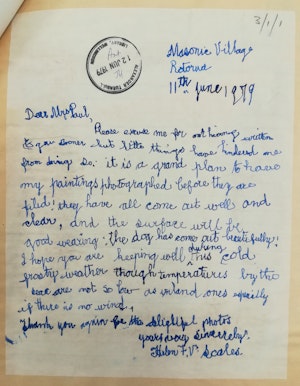 3/1/1
Masonic Village
Rotorua
11th June 1979
ALEXANDER TURNBULL
12 JUN 1979
LIBRARY WELLINGTON
Dear Mrs Paul,
Please excuse me for not having written
to you sooner but little things have hindered me
from doing so. it is a grand plan to have
my paintings photographed before they are
filed! they have all come out well and
clear, and the surface will be
good wearing. the dog has come out beautifully!
I hope you are keeping well during this cold
frosty weather though temperatures by the
sea are not so low as inland ones especially
if there is no wind.
Thank you again for the delightful photos
yours very sincerely.
Helen F.V. Scales.